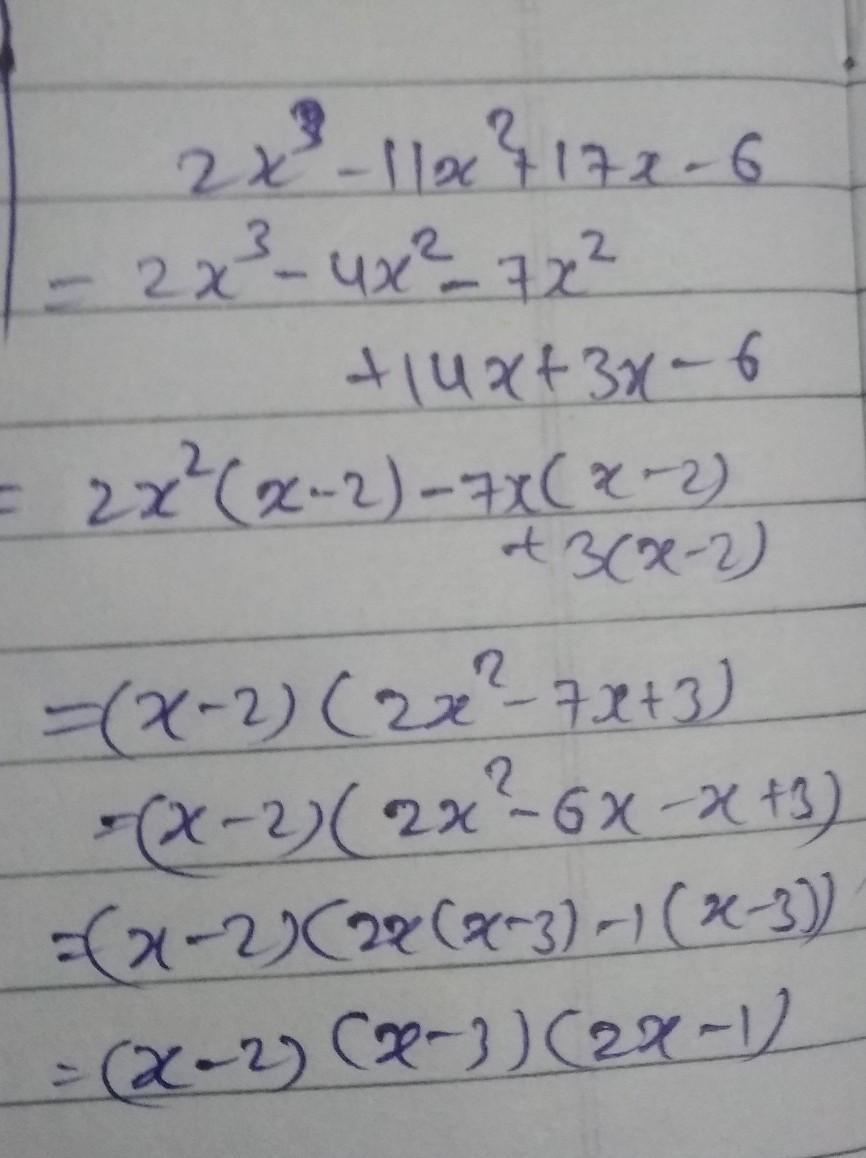 2x³ - 11x² + 17x - 6
= 2x³ - 4x² - 7x²
+ 14x + 3x - 6
= 2x²(x - 2) - 7x(x - 2)
+ 3(x - 2)
= (x - 2) (2x² - 7x + 3)
= (x - 2)(2x² - 6x - x + 3)
= (x - 2)(2x(x - 3) - 1(x - 3))
= (x - 2) (x - 3) (2x - 1)